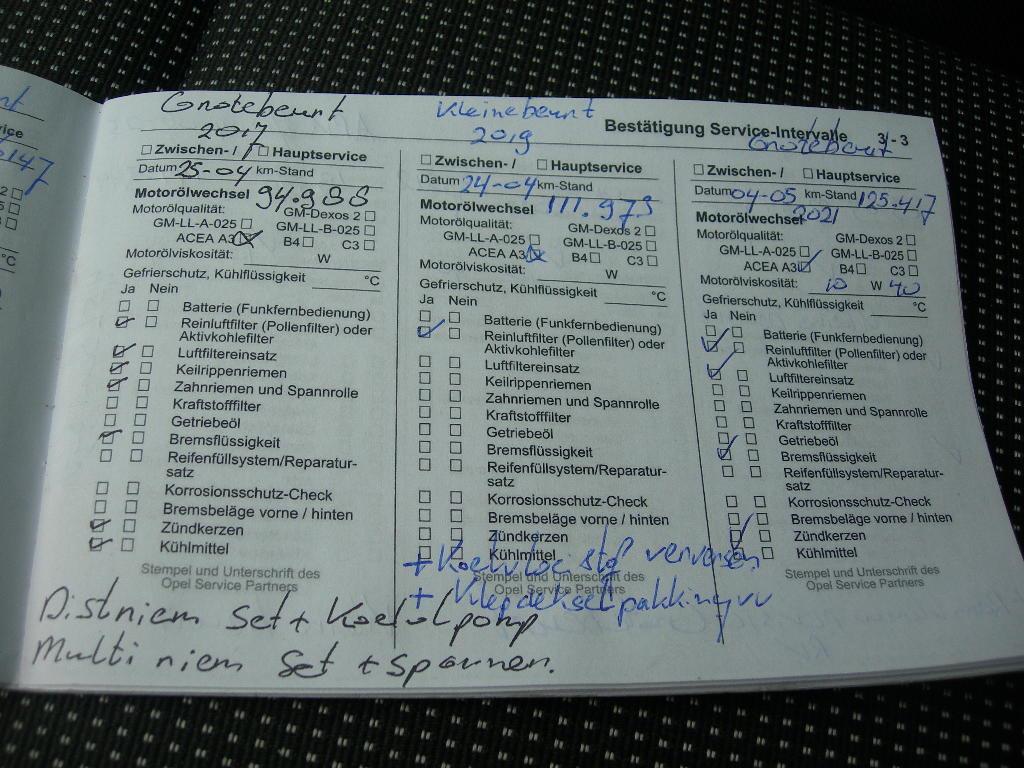 nt
vice
6147
Grotebeurt
2017
Kleinebeurt
2019
Bestätigung Service-Intervalle 3 - 3
Grotebeurt
Zwischen- / Hauptservice
Datum 25-04 km-Stand
94.988
Motorölwechsel
Motorölqualität: GM-Dexos 2
GM-LL-A-025 GM-LL-B-025
ACEA A3 B4 C3
Motorölviskosität: W
Gefrierschutz, Kühlflüssigkeit °C
Ja Nein
Batterie (Funkfernbedienung)
Reinluftfilter (Pollenfilter) oder
Aktivkohlefilter
Luftfiltereinsatz
Keilrippenriemen
Zahnriemen und Spannrolle
Kraftstofffilter
Getriebeöl
Bremsflüssigkeit
Reifenfüllsystem/Reparatur-
satz
Korrosionsschutz-Check
Bremsbeläge vorne / hinten
Zündkerzen
Kühlmittel
Stempel und Unterschrift des
Opel Service Partners
Distriem Set + Koelvlpomp
Multi riem Set + spanner.
Zwischen- / Hauptservice
Datum 24-04 km-Stand
Motorölwechsel 111.973
Motorölqualität: GM-Dexos 2
GM-LL-A-025 GM-LL-B-025
ACEA A3 B4 C3
Motorölviskosität: W
Gefrierschutz, Kühlflüssigkeit °C
Ja Nein
Batterie (Funkfernbedienung)
Reinluftfilter (Pollenfilter) oder
Aktivkohlefilter
Luftfiltereinsatz
Keilrippenriemen
Zahnriemen und Spannrolle
Kraftstofffilter
Getriebeöl
Bremsflüssigkeit
Reifenfüllsystem/Reparatur-
satz
Korrosionsschutz-Check
Bremsbeläge vorne / hinten
Zündkerzen
Kühlmittel
+ Koelvloeistof verversen
Stempel und Unterschrift des
Opel Service Partners
+ Klepdekselpakking vv
Zwischen- / Hauptservice
Datum 04-05 km-Stand 125.417
Motorölwechsel 2021
Motorölqualität: GM-Dexos 2
GM-LL-A-025 GM-LL-B-025
ACEA A3 B4 C3
Motorölviskosität: 10 W 40
Gefrierschutz, Kühlflüssigkeit °C
Ja Nein
Batterie (Funkfernbedienung)
Reinluftfilter (Pollenfilter) oder
Aktivkohlefilter
Luftfiltereinsatz
Keilrippenriemen
Zahnriemen und Spannrolle
Kraftstofffilter
Getriebeöl
Bremsflüssigkeit
Reifenfüllsystem/Reparatur-
satz
Korrosionsschutz-Check
Bremsbeläge vorne / hinten
Zündkerzen
Kühlmittel
Stempel und Unterschrift des
Opel Service Partners